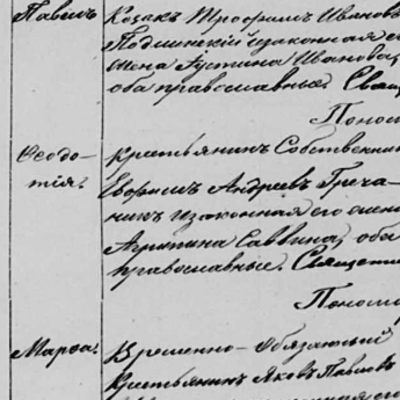 Павелъ
Козакъ Трофимъ Ивановъ
Подлинскій и законная е
жена Іустина Иванова,
оба православные. Свящ
Поном
Ѳеодо-
тія.
Крестьянинъ Собственник
Евфимъ Андреевъ Греча-
никъ и законная его жен
Агрипина Саввина, оба
православные. Священ
Поном
Марѳа.
Временно-Обязанный
Крестьянинъ Яковъ Павлов